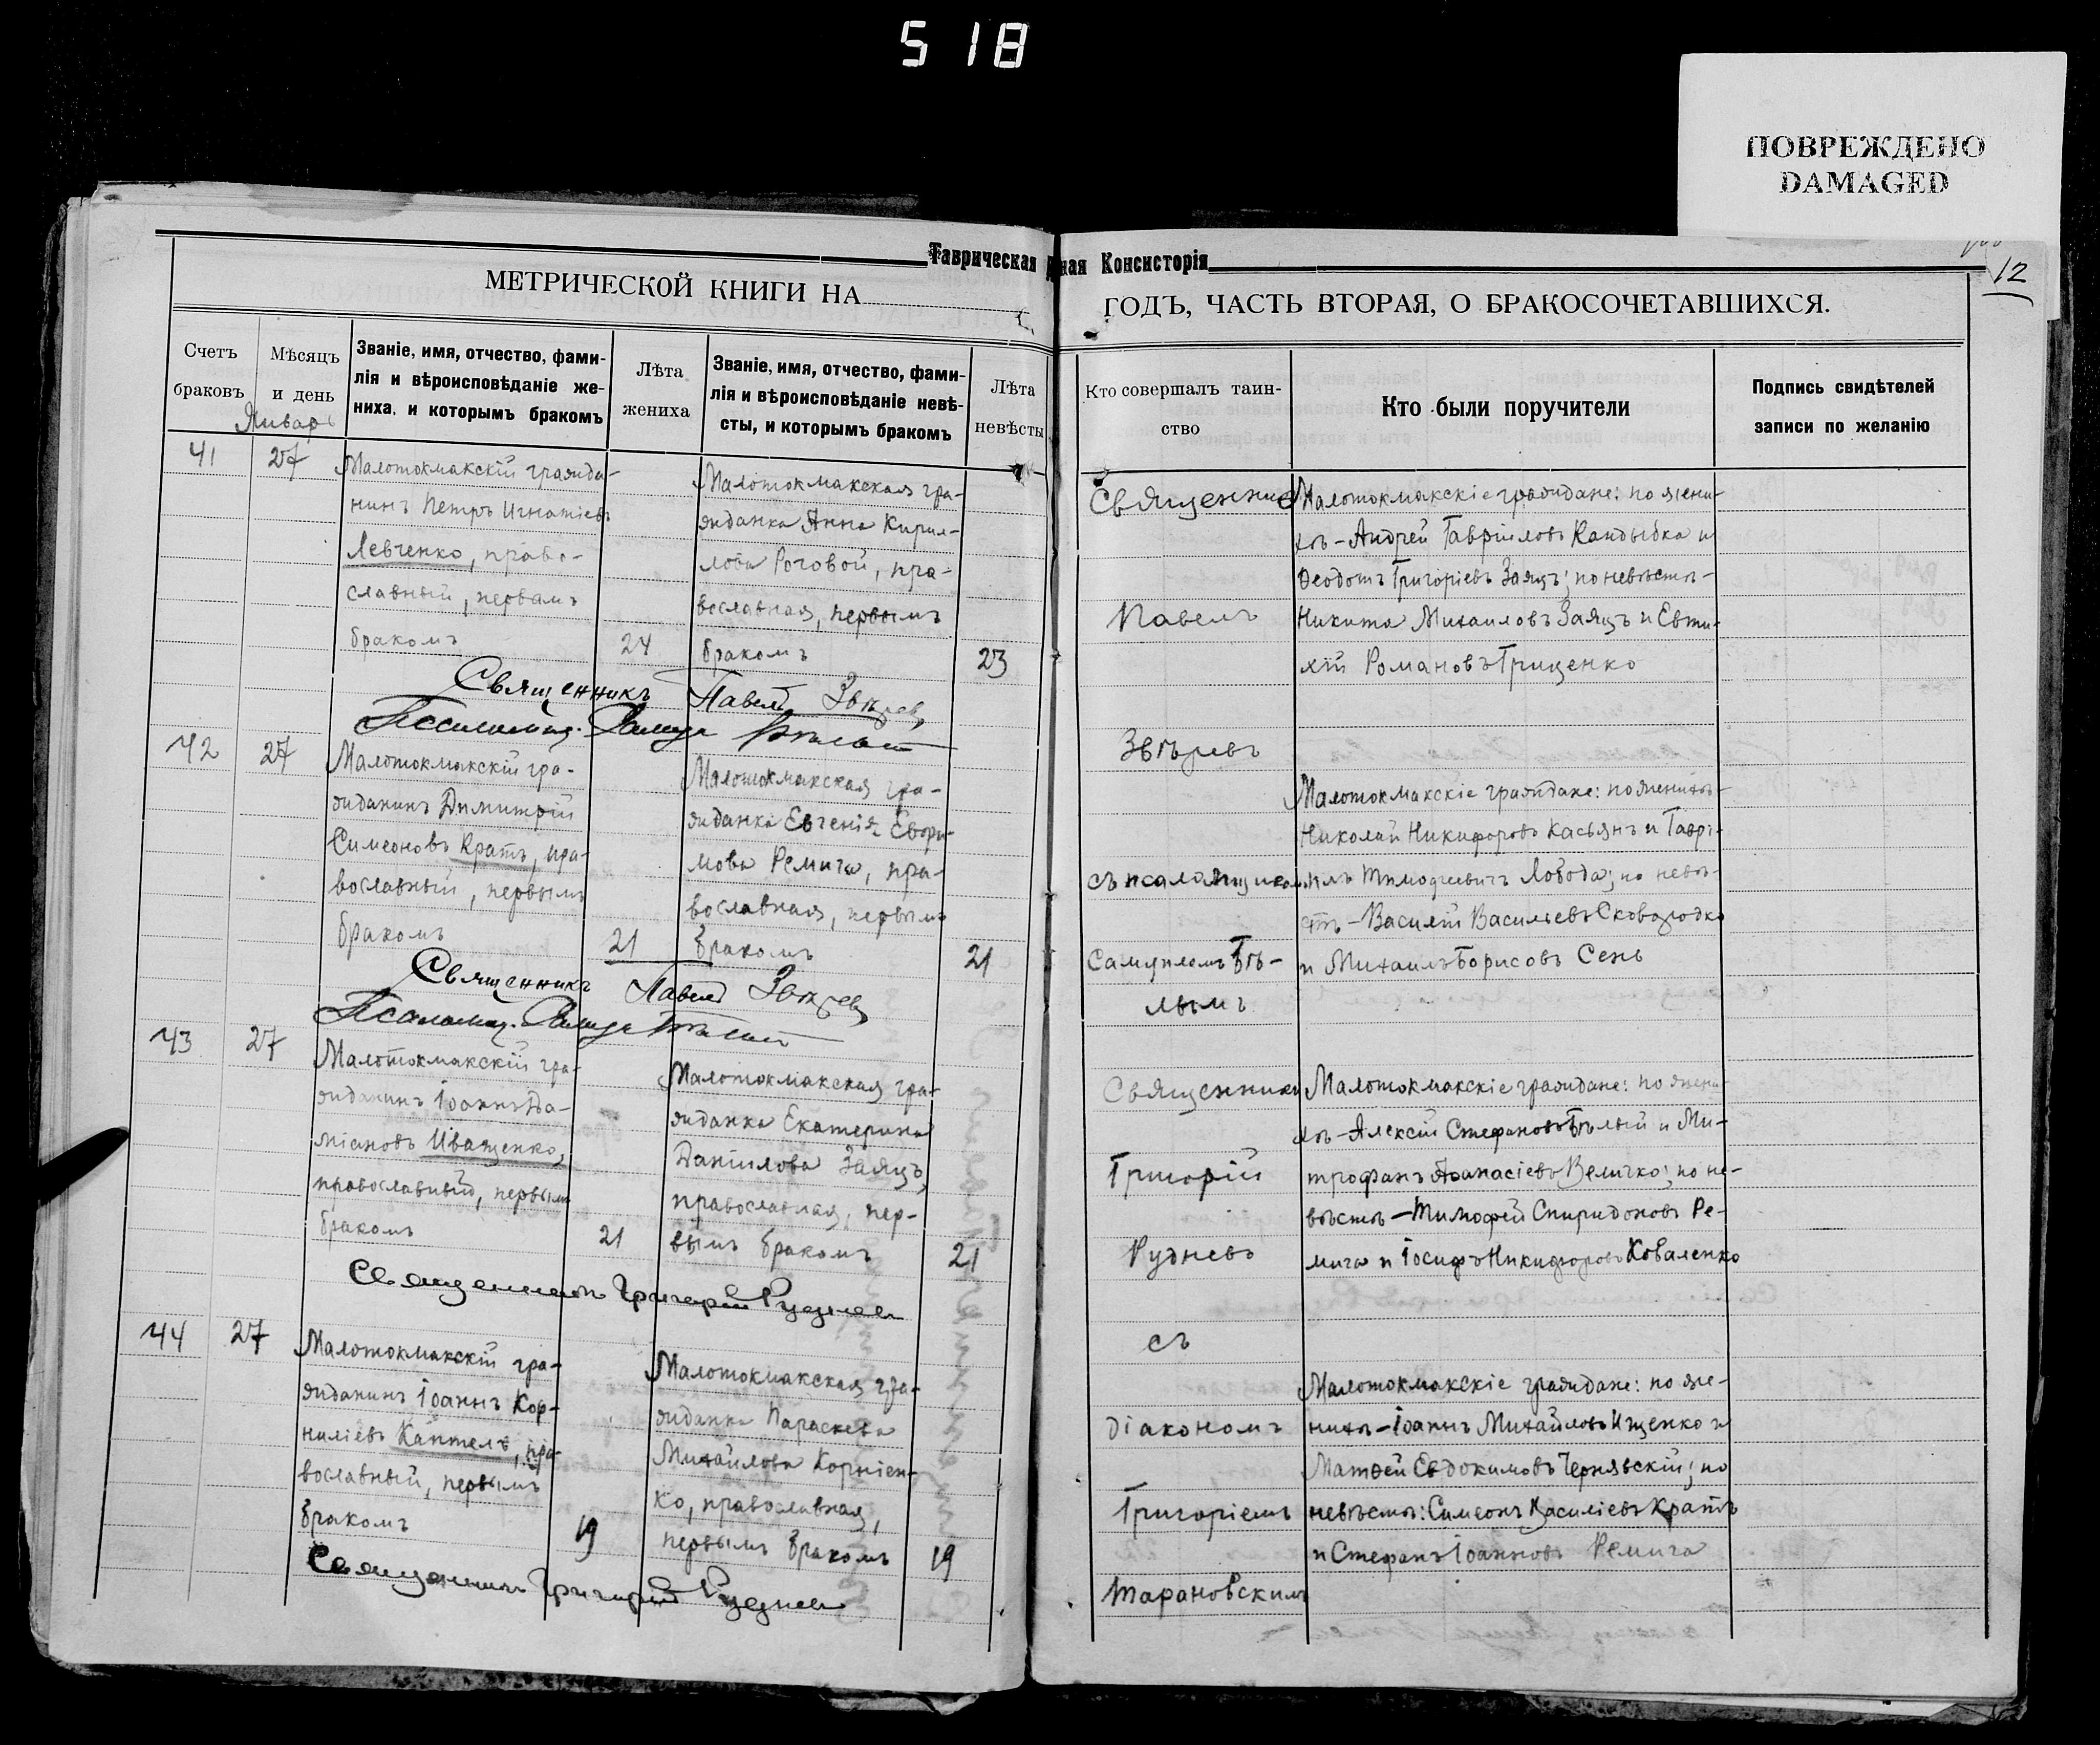 518
ПОВРЕЖДЕНО
DAMAGED
Таврическая ная Консисторія
12
МЕТРИЧЕСКОЙ КНИГИ НА
ГОДЪ, ЧАСТЬ ВТОРАЯ, О БРАКОСОЧЕТАВШИХСЯ.
Счетъ
браковъ
Мѣсяцъ
и день
Январь
Званіе, имя, отчество, фами-
лія и вѣроисповѣданіе же-
ниха, и которымъ бракомъ
Лѣта
жениха
Званіе, имя, отчество, фами-
лія и вѣроисповѣданіе невѣ-
сты, и которымъ бракомъ
Лѣта
невѣсты
Кто совершалъ таин-
ство
Кто были поручители
Подпись свидѣтелей
записи по желанію
41
27
Малотокмакскій гражда-
нинъ Петръ Игнатіевъ
Левченко, право-
славный, первымъ
бракомъ
24
Малотокмакская гра-
жданка Анна Кирил-
лова Роговой, пра-
вославная, первымъ
бракомъ
23
Священникъ Павелъ Звѣревъ
Священникъ
Павелъ
Звѣревъ
Малотокмакскіе граждане: по жени-
хѣ - Андрей Гавріиловъ Кандыбка и
Ѳеодотъ Григоріевъ Заяцъ; по невѣстѣ -
Никита Михаиловъ Заяцъ и Евти-
хій Романовъ Гриценко
42
27
Малотокмакскій гра-
жданинъ Димитрій
Симеоновъ Кратъ, пра-
вославный, первымъ
бракомъ
21
Малотокмакская гра-
жданка Евгенія
мова Ремига, пра-
вославная, первымъ
бракомъ
21
Священникъ Павелъ Звѣревъ
съ псаломщикомъ
Самуиломъ Бѣ-
лымъ
Малотокмакскіе граждане: по женихѣ -
Николай Никифоровъ Касьянъ и Гаврі-
илъ Тимоѳеевичъ Лобода; по невѣ-
стѣ - Василій Васильевъ Сковородко
и Михаилъ Борисовъ Сень
43
27
Малотокмакскій гра-
жданинъ Іоаннъ Да-
міановъ Иващенко,
православный, первымъ
бракомъ
21
Малотокмакская гра-
жданка Екатерина
Даніилова Заяцъ,
православная, пер-
вымъ бракомъ
21
Священникъ Григорій Рудневъ
Священникъ
Григорій
Рудневъ
съ
Малотокмакскіе граждане: по жени-
хѣ - Алексій Стефановъ Бѣлый и Ми-
трофанъ Аѳанасіевъ Величко; по не-
вѣстѣ - Тимофей Спиридоновъ Ре-
мига и Іосифъ Никифоровъ Коваленко
44
27
Малотокмакскій гра-
жданинъ Іоаннъ Кор-
ниліевъ Каптелъ, пра-
вославный, первымъ
бракомъ
19
Малотокмакская гра-
жданка Параскева
Михайлова Корніен-
ко, православная,
первымъ бракомъ
19
Священникъ Григорій Рудневъ
діакономъ
Григоріемъ
Тарановскимъ
Малотокмакскіе граждане: по же-
нихѣ - Іоаннъ Михайловъ Ищенко и
Матѳей Евдокимовъ Чернявскій; по
невѣстѣ: Симеонъ Василіевъ Кратъ
и Стефанъ Іоанновъ Ремига